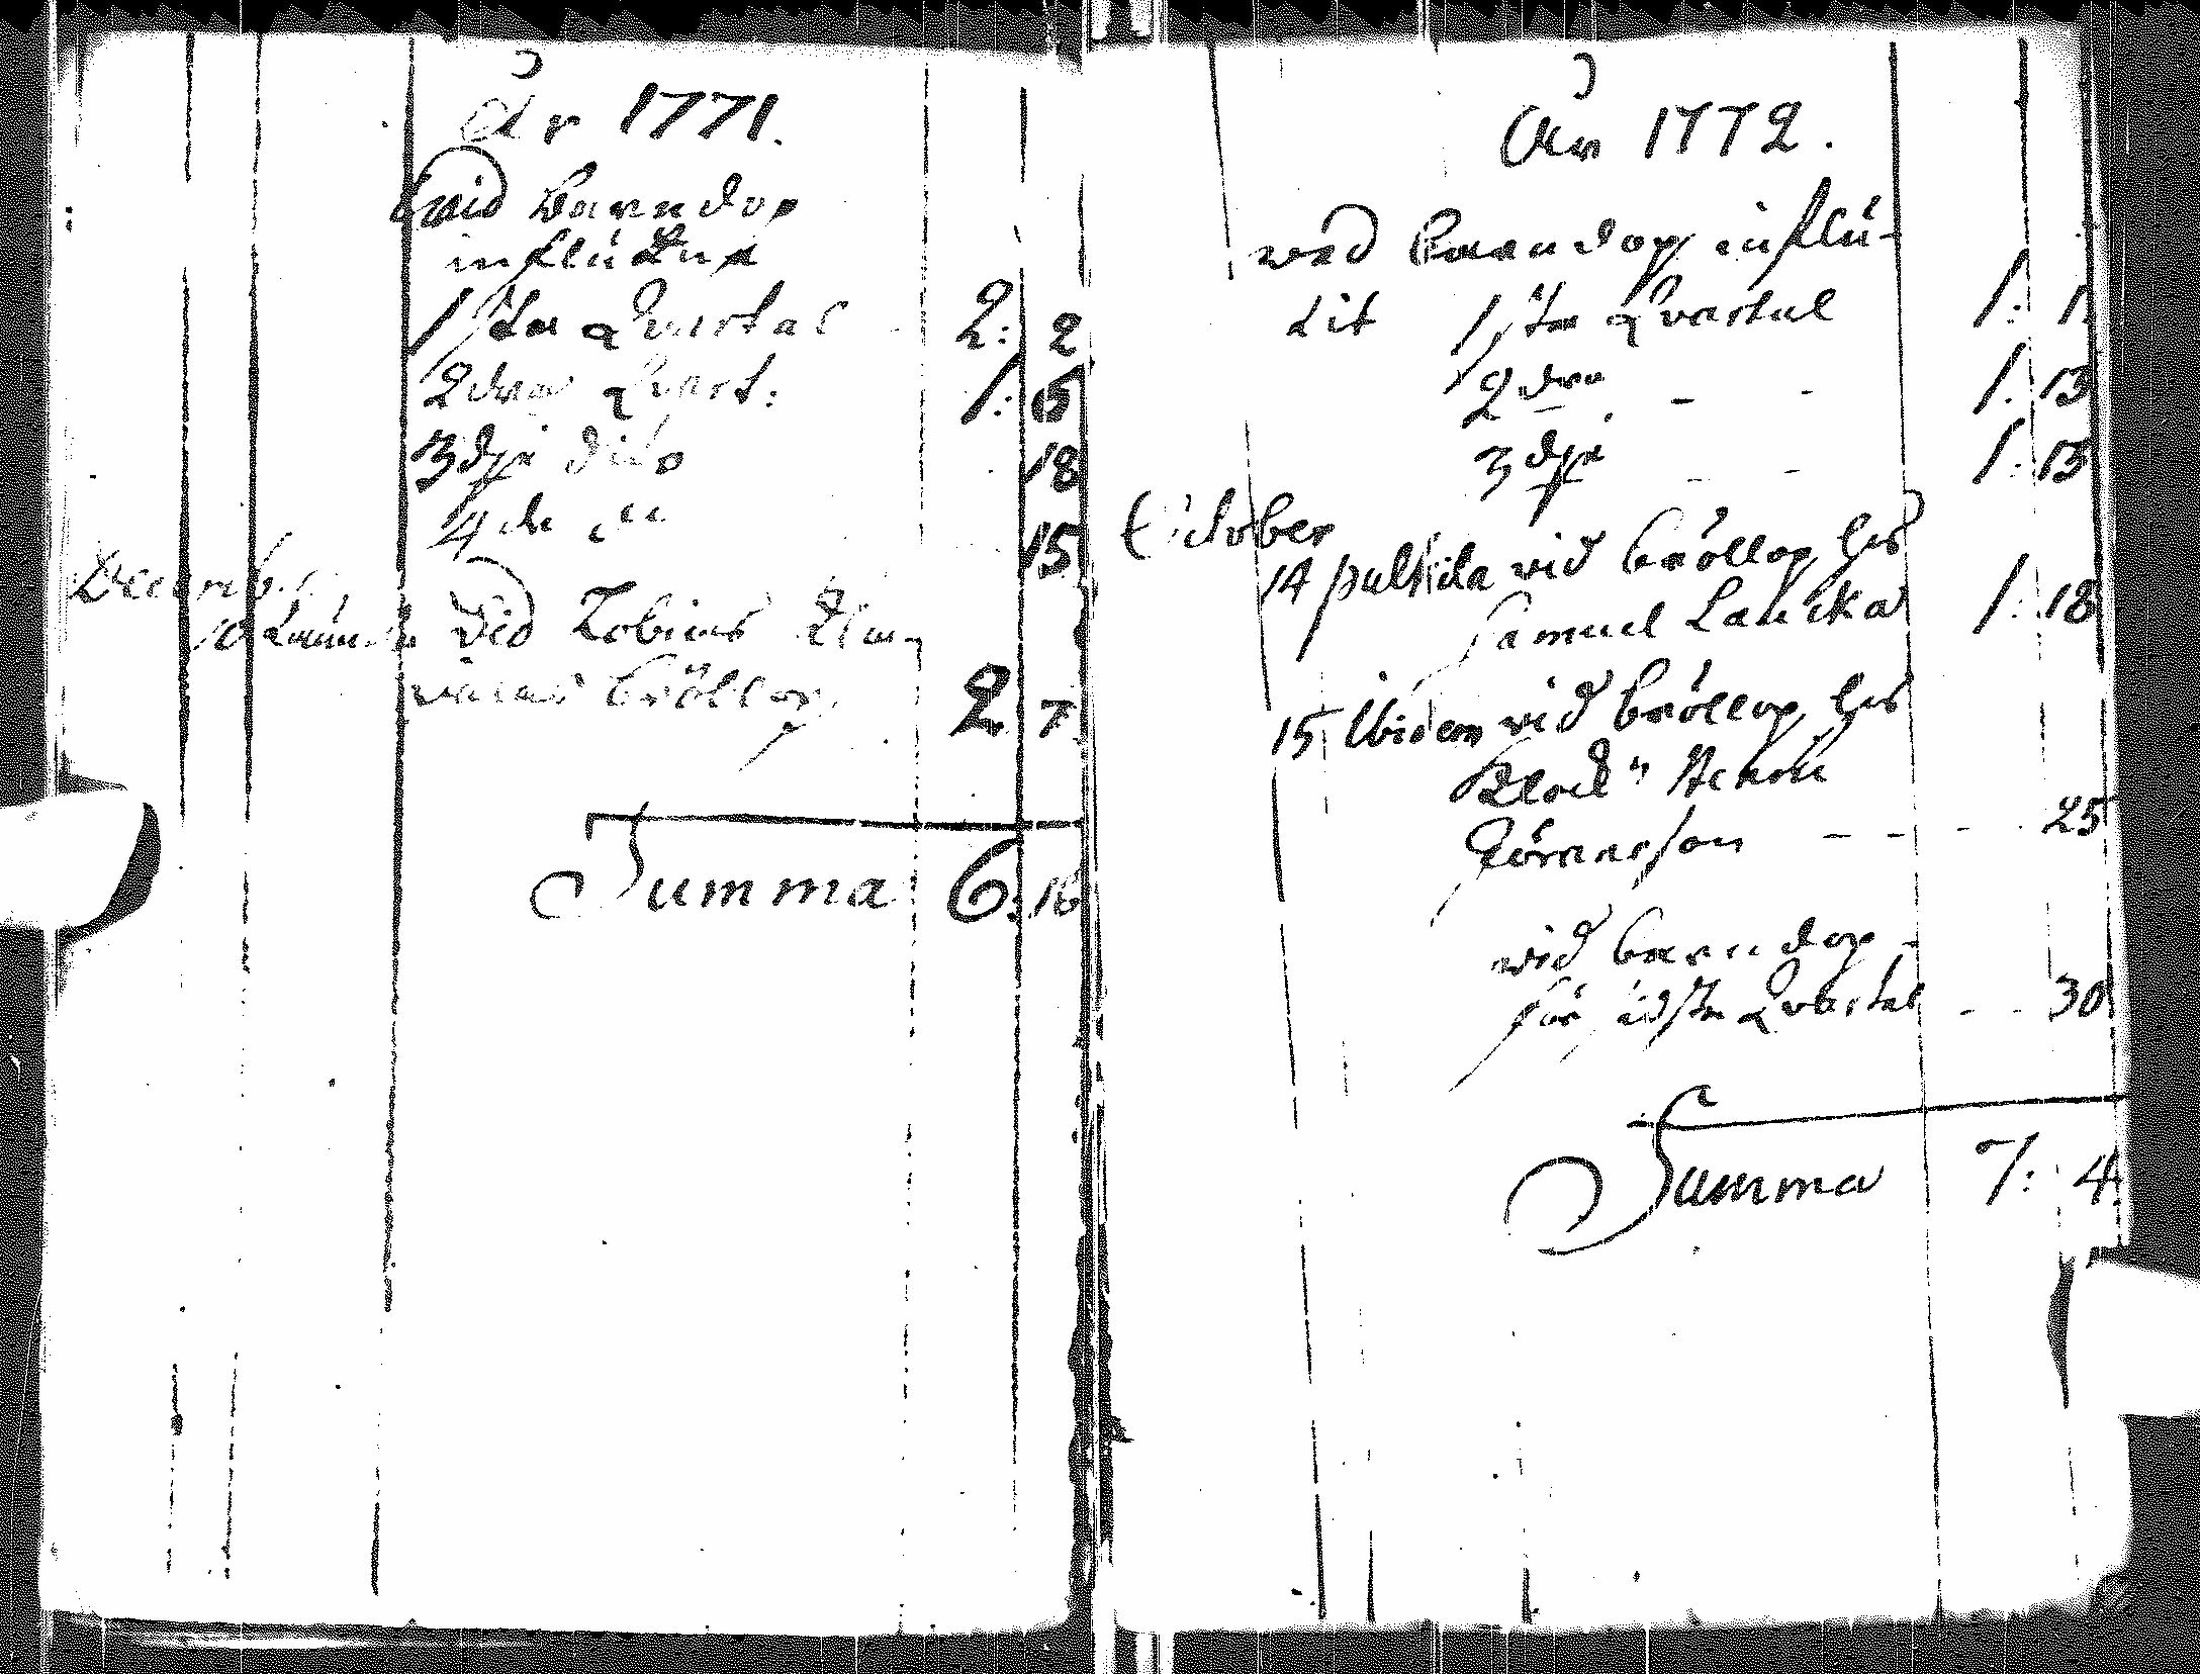 År 1771.
wid Barndop
influtne
1sta Qvartal - 2: 2
2dra Qvart: 1: 15
3dje dito 18
4de 15
Decemb.
10 wid Tobias
bröllop 2 7.
Summa 6: 16
År 1772.
wid barndop influ-
tit 1sta Qvartal 1: 1.
2dra - - 1: 13
3dje - - 1: 13
October
14 pulkila wid bröllop hos
Samuel Laucka 1: 18
15 Ibidem wid bröllop hos
Henric
Göransson - - - 25
wid barndop -
för sidsta Qvartal - - 30
Summa 7: 4.